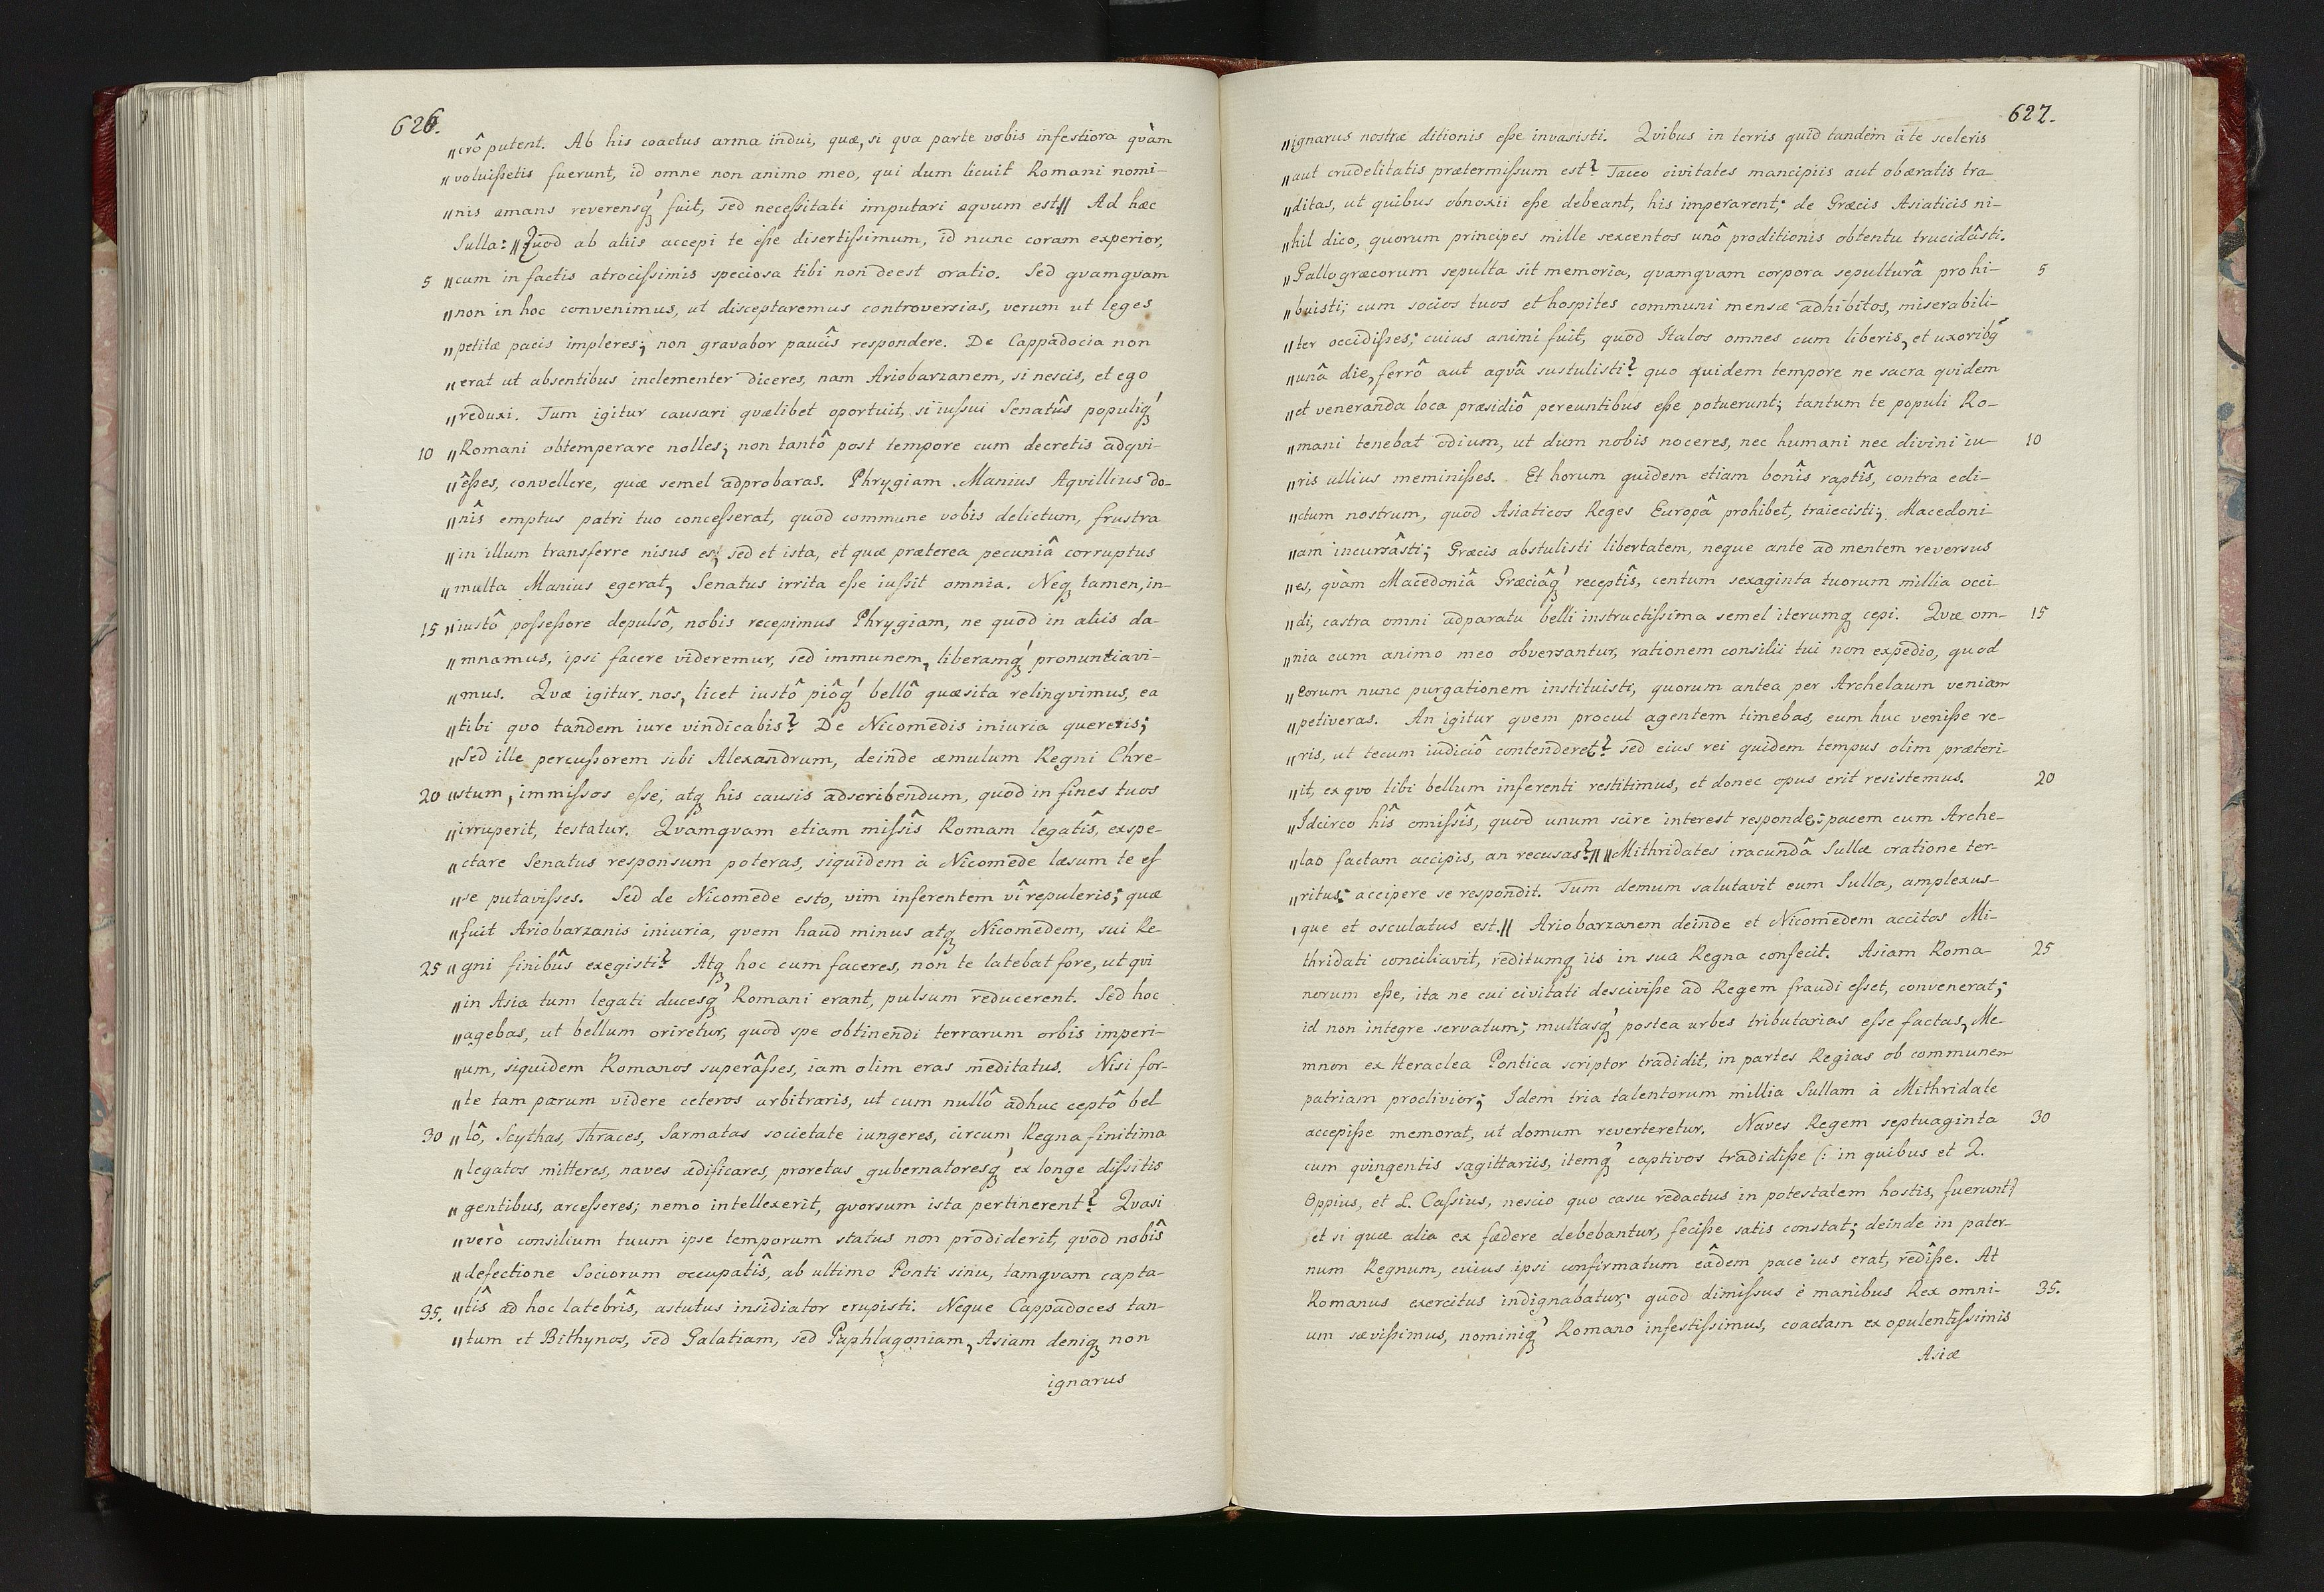 626.
„crô putent. Ab his coactus arma indui, quæ, si qva parte vobis infestiora qvàm
„voluißetis fuerunt, id omne non animo meo, qui dum licuit Romani nomi-
„nis amans reverensq́ fuit, sed neceßitati imputari æqvum est„ Ad hæc
Sulla: „Quod ab aliis accepi te eße disertißimum, id nunc coram experior,
5 „cum in factis atrocißimis speciosa tibi non deest oratio. Sed qvamqvam
„non in hoc convenimus, ut disceptaremus controversias, verum ut leges
„petitæ pacis impleres; non gravabor paucîs respondere. De Cappadocia non
„erat ut absentibus inclementer diceres, nam Ariobarzanem, si nescis, et ego
„reduxi. Tum igitur causari qvælibet oportuit, si iußui Senatûs populiq́
10 „Romani obtemperare nolles; non tantô post tempore cum decretis adqvi-
„eßes, convellere, quæ semel adprobaras. Phrygiam Manius Aqvillius do-
„nîs emptus patri tuo conceßerat, quod commune vobis delictum, frustra
„in illum transferre nisus es; sed et ista, et quæ præterea pecuniâ corruptus
„multa Manius egerat, Senatus irrita eße iußit omnia. Neq tamen, in-
15 „iustô poßeßore depulsô, nobis recepimus Phrygiam, ne quod in aliis da-
„mnamus, ipsi facere videremur, sed immunem, liberamq́ pronuntiavi-
„mus. Qvæ igitur nos, licet iustô piôq́ bellô quæsita relinqvimus, ea
„tibi qvo tandem iure vindicabis? De Nicomedis iniuria quereris;
„Sed ille percußorem sibi Alexandrum, deinde æmulum Regni Chre-
20 „stum, immißos eße, atq his causis adscribendum, quod in fines tuos
„irruperit, testatur. Qvamqvam etiam mißîs Romam legatîs, exspe-
„ctare Senatus responsum poteras, siquidem à Nicomede læsum te es
„se putavißes. Sed de Nicomede esto, vim inferentem vî repuleris; quæ
„fuit Ariobarzanis iniuria, qvem haud minus atq Nicomedem, sui Re-
25 „gni finibûs exegisti? Atq hoc cum faceres, non te latebat fore, ut qvi
„in Asia tum legati ducesq́ Romani erant, pulsum reducerent. Sed hoc
„agebas, ut bellum oriretur, quod spe obtinendi terrarum orbis imperi-
„um, siquidem Romanos superâßes, iam olim eras meditatus. Nisi for-
„te tam parum videre ceteros arbitraris, ut cum nullô adhuc ceptô bel
30 „lô, Scythas, Thraces, Sarmatas societate iungeres, circum Regna finitima
„legatos mitteres, naves ædificares, proretas gubernatoresq́ ex longe dißitis
„gentibus, arceßeres; nemo intellexerit, qvorsum ista pertinerent? Qvasi
„verò consilium tuum ipse temporum status non prodiderit, qvod nobîs
„defectione Sociorum occupatîs, ab ultimo Ponti sinu, tamqvam capta-
35. „tîs ad hoc latebrîs, astutus insidiator erupisti. Neque Cappadoces tan-
„tum et Bithynos, sed Galatiam, sed Paphlagoniam, Asiam deniq non
ignarus
627.
„ignarus nostræ ditionis eße invasisti. Qvibus in terris quid tandem à te sceleris
„aut crudelitatis prætermißum est? Taceo civitates mancipiis aut obæratis tra
„ditas, ut quibus obnoxii eße debeant, his imperarent; de Græcis Asiaticis ni-
„hil dico, quorum principes mille sexcentos unô proditionis obtentu trucidâsti.
„Gallogræcorum sepulta sit memoria, qvamqvam corpora sepulturâ prohi- 5
„buisti; cum socios tuos et hospites communi mensæ adhibitos, miserabili-
„ter occidißes; cuius animi fuit, quod Italos omnes cum liberis, et uxoribq́
„unâ die, ferrô aut aqvâ sustulisti? quo quidem tempore ne sacra qvidem
„et veneranda loca præsidiô pereuntibus eße potuerunt; tantum te populi Ro-
„mani tenebat odium, ut dum nobis noceres, nec humani nec divini iu- 10
„ris ullius meminißes. Et horum quidem etiam bonîs raptîs, contra edi-
„ctum nostrum, quod Asiaticos Reges Europâ prohibet, traiecisti; Macedoni-
„am incursâsti; Græcis abstulisti libertatem, neque ante ad mentem reversus
„es, qvàm Macedoniâ Græciâq́ receptîs, centum sexaginta tuorum millia occi-
„di, castra omni adparatu belli instructißima semel iterumq cepi. Qvæ om- 15
„nia cum animo meo obversantur, rationem consilii tui non expedio, quod
„eorum nunc purgationem instituisti, quorum antea per Archelaum veniam
„petiveras. An igitur qvem procul agentem timebas, eum huc veniße re-
„ris, ut tecum iudiciô contenderet? sed eius rei quidem tempus olim præteri-
„it, ex qvo tibi bellum inferenti restitimus, et donec opus erit resistemus. 20
„Idcirco hîs omißîs, quod unum scire interest responde; pacem cum Arche-
„lao factam accipis, an recusas?„ „Mithridates iracundâ Sullæ oratione ter-
„ritus: accipere se respondit. Tum demum salutavit eum Sulla, amplexus-
„que et osculatus est.„ Ariobarzanem deinde et Nicomedem accitos Mi-
thridati conciliavit, reditumq iis in sua Regna confecit. Asiam Roma- 25
norum eße, ita ne cui civitati desciviße ad Regem fraudi eßet, convenerat;
id non integre servatum; multasq́ postea urbes tributarias eße factas, Me
mnon ex Heraclea Pontica scriptor tradidit, in partes Regias ob communem
patriam proclivior; Idem tria talentorum millia Sullam à Mithridate
accepiße memorat, ut domum reverteretur. Naves Regem septuaginta 30
cum qvingentis sagittariis, itemq́ captivos tradidiße (: in quibus et Q.
Oppius, et L. Caßius, nescio quo casu redactus in potestatem hostis, fuerunt:)
et si quæ alia ex fædere debebantur, feciße satis constat; deinde in pater-
num Regnum, cuius ipsi confirmatum eâdem pace ius erat, rediße. At
Romanus exercitus indignabatur; quod dimißus è manibus Rex omni- 35.
um sævißimus, nominiq́ Romano infestißimus, coactam ex opulentißimis
Asiæ